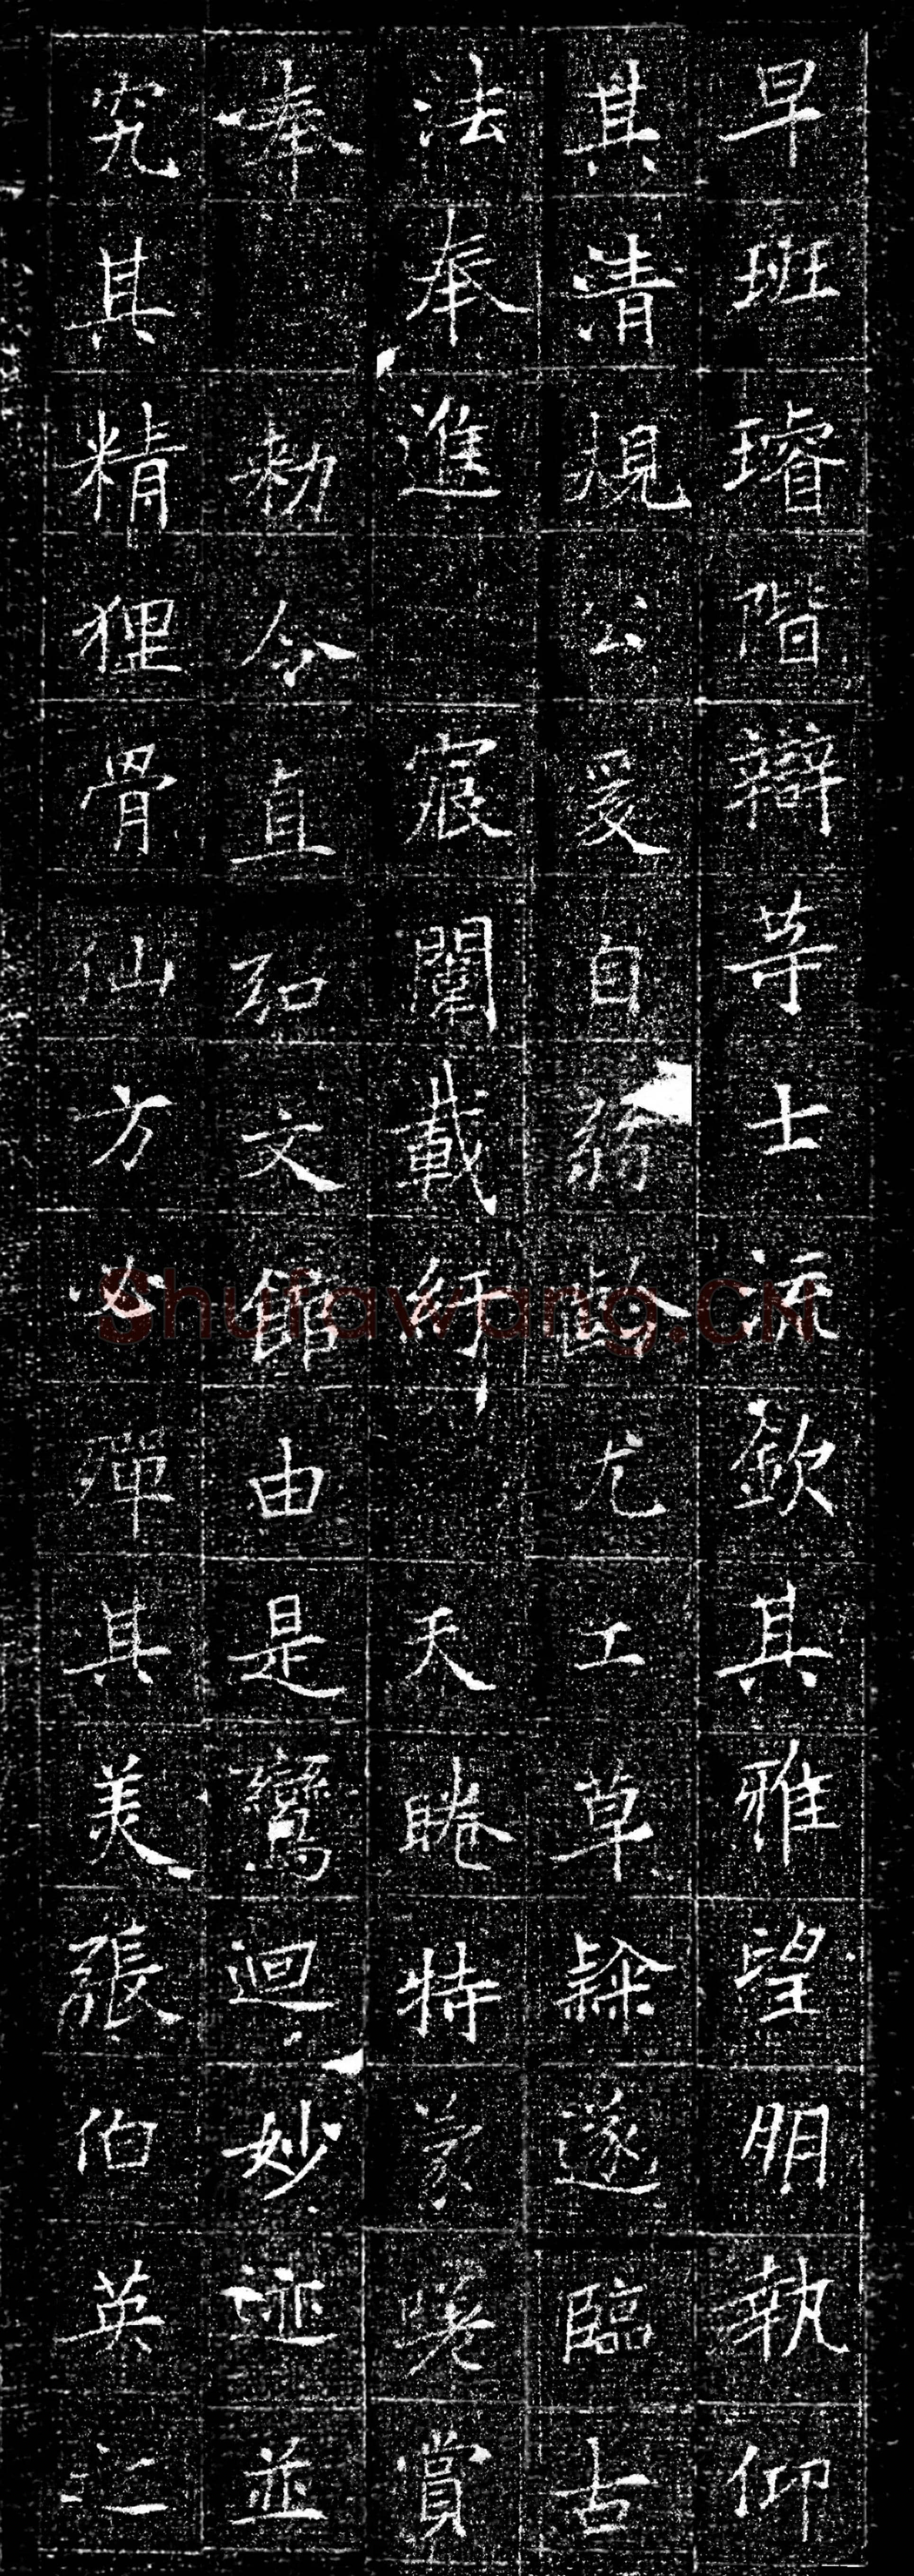 早班璿階辯等士流欽其雅望朋執仰
其清規公爰自弱齡尤工草隸遂臨古
法奉進 宸闈載紆 天睠特蒙賞
奉 勅令直弘文館由是鸞迴妙迹並
究其精狸骨仙方必殫其美張伯英之
Shufawang.CN